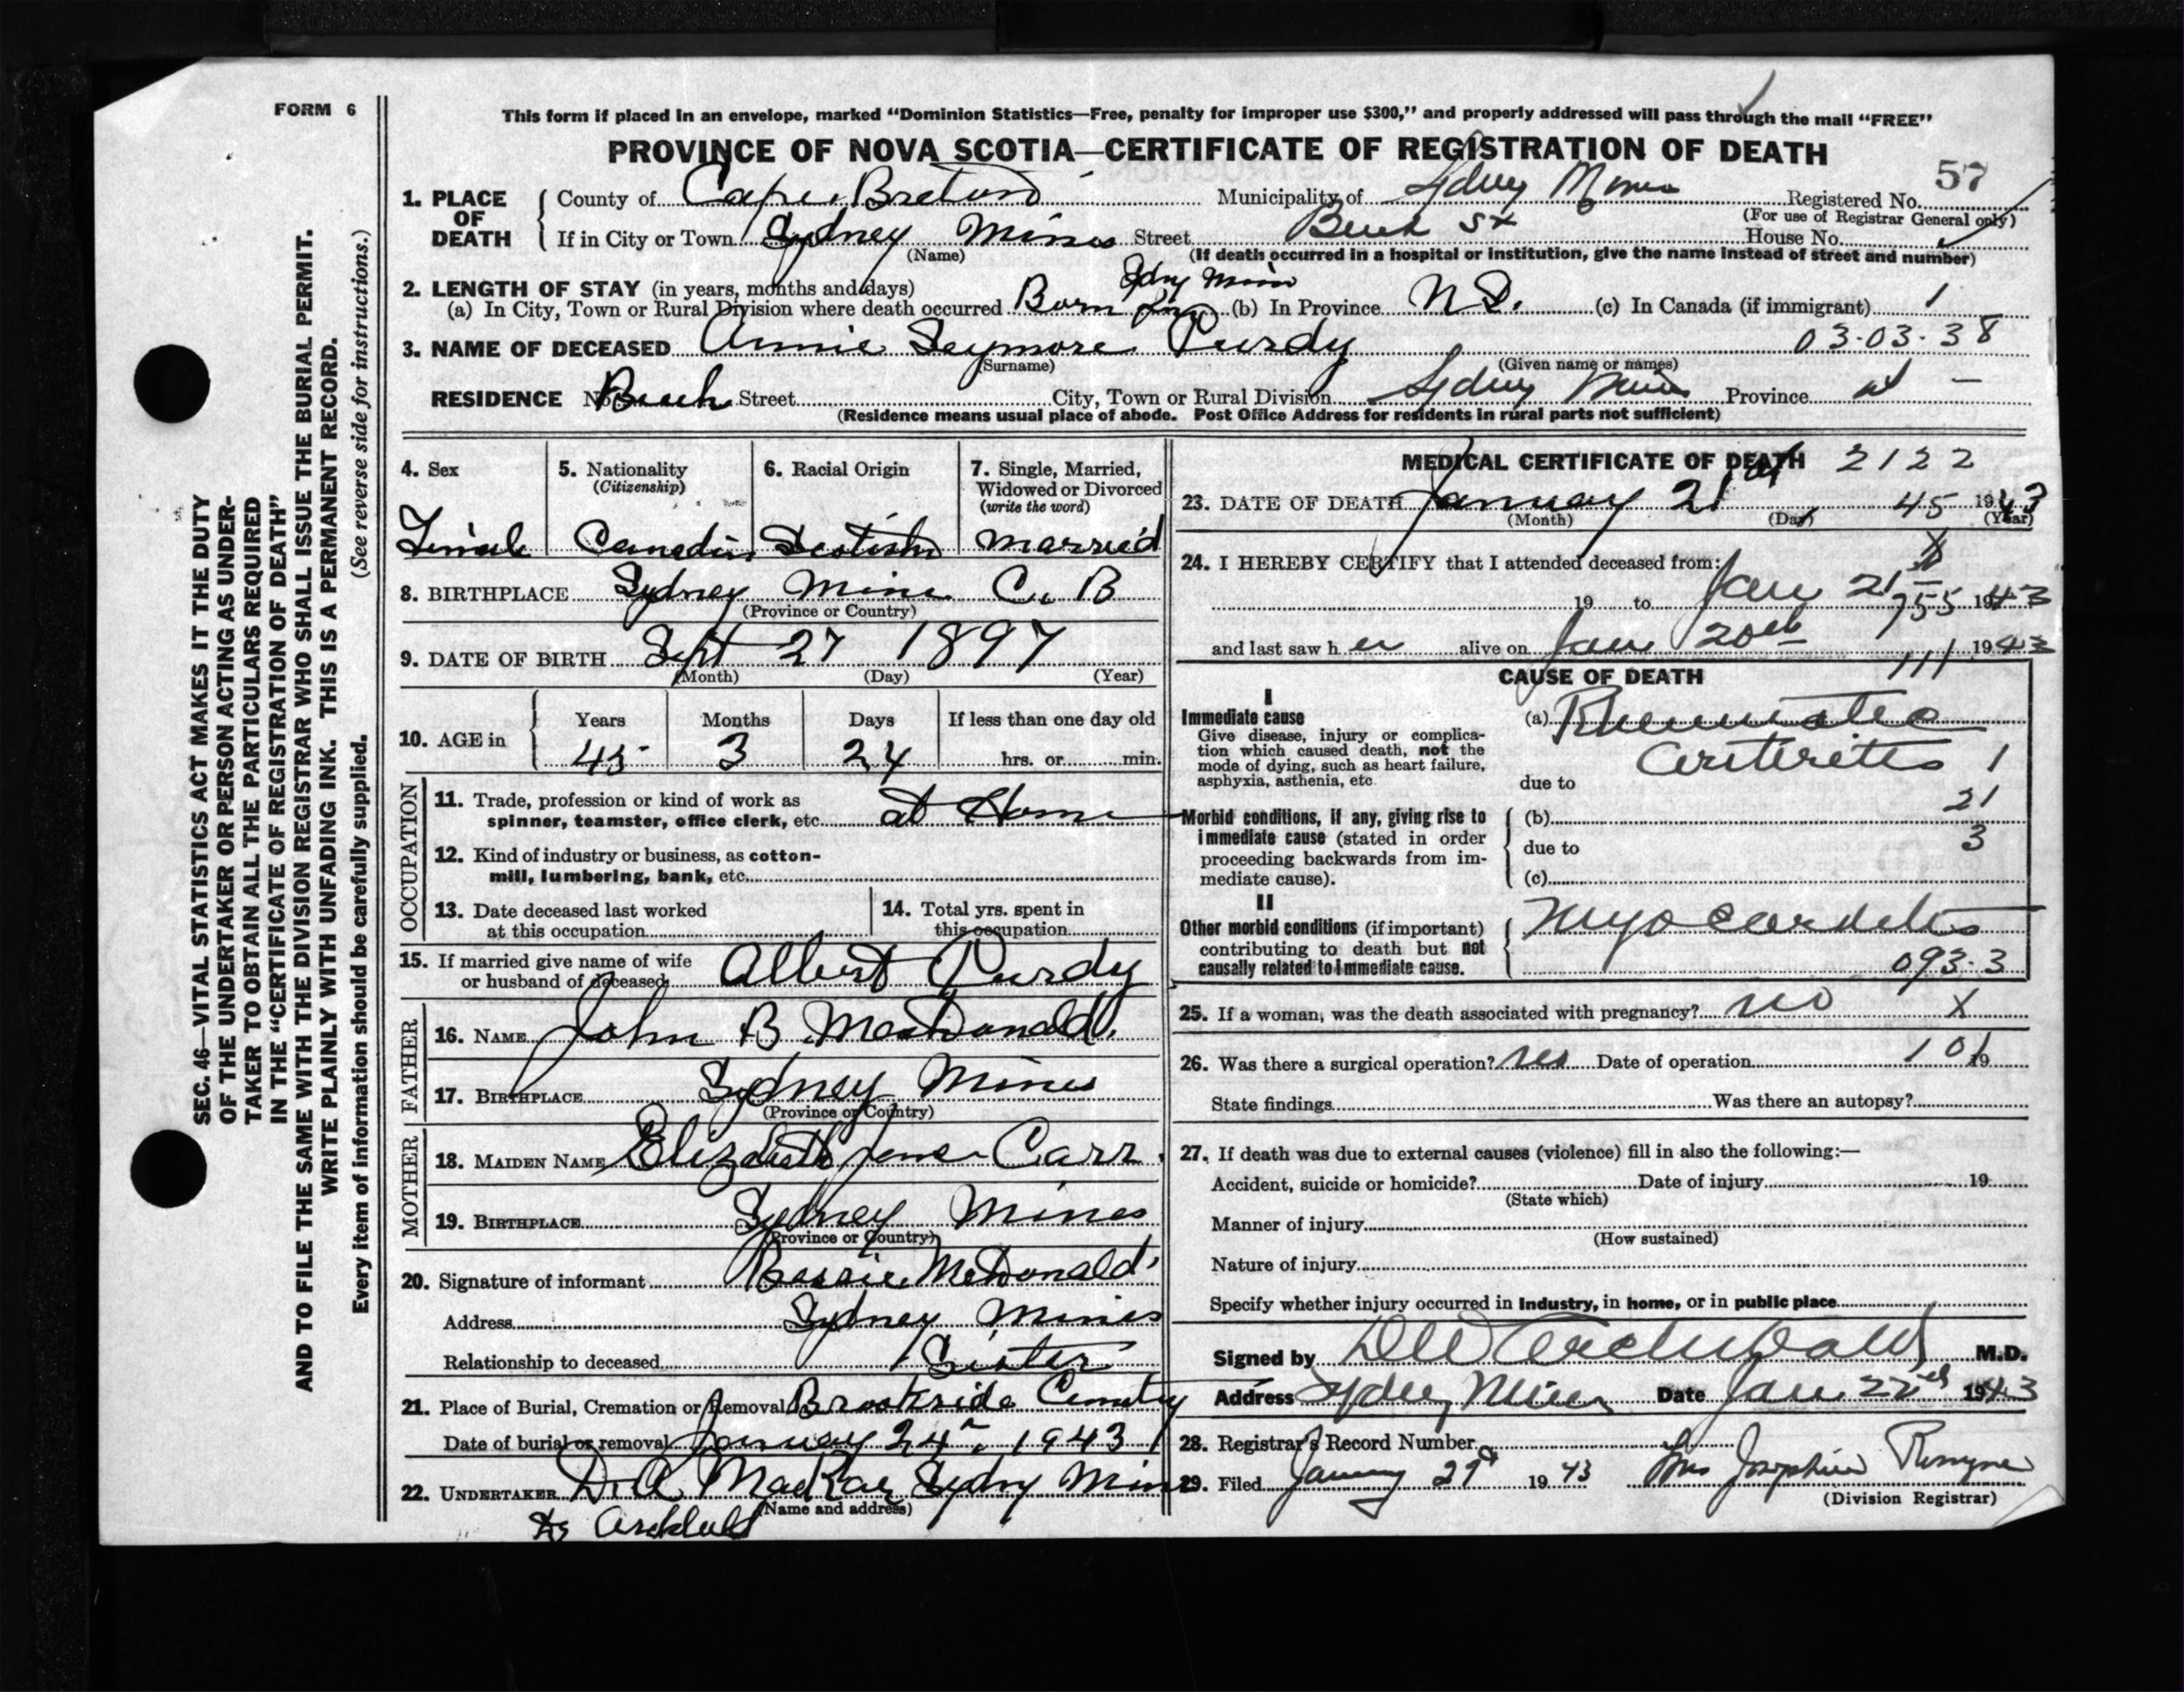 FORM 6
This form if placed in an envelope, marked “Dominion Statistics—Free, penalty for improper use $300,” and properly addressed will pass through the mail “FREE”
PROVINCE OF NOVA SCOTIA—CERTIFICATE OF REGISTRATION OF DEATH
57
1. PLACE OF DEATH
County of Cape Breton Municipality of Sydney Mines Registered No.
(For use of Registrar General only)
If in City or Town Sydney Mines Street Beech St House No.
(Name) (If death occurred in a hospital or institution, give the name instead of street and number)
2. LENGTH OF STAY (in years, months and days)
Sydney Mines
(a) In City, Town or Rural Division where death occurred Born in (b) In Province N.S. (c) In Canada (if immigrant) 1
3. NAME OF DECEASED Annie Seymore Purdy 03-03-38
(Surname) (Given name or names)
RESIDENCE No. Beech Street City, Town or Rural Division Sydney Mines Province
(Residence means usual place of abode. Post Office Address for residents in rural parts not sufficient)
4. Sex 5. Nationality (Citizenship) 6. Racial Origin 7. Single, Married, Widowed or Divorced (write the word)
Female Canadian Scotish married
8. BIRTHPLACE Sydney Mines C. B
(Province or Country)
9. DATE OF BIRTH Sept 27 1897
(Month) (Day) (Year)
10. AGE in Years Months Days If less than one day old
45 3 24 hrs. or min.
OCCUPATION
11. Trade, profession or kind of work as spinner, teamster, office clerk, etc. at Home
12. Kind of industry or business, as cotton-mill, lumbering, bank, etc.
13. Date deceased last worked at this occupation
14. Total yrs. spent in this occupation
15. If married give name of wife or husband of deceased Albert Purdy
FATHER
16. NAME John B MacDonald
17. BIRTHPLACE Sydney Mines
(Province or Country)
MOTHER
18. MAIDEN NAME Elizabeth Jane Carr
19. BIRTHPLACE Sydney Mines
(Province or Country)
20. Signature of informant Bessie McDonald
Address Sydney Mines
Relationship to deceased Sister
21. Place of Burial, Cremation or Removal Brookside Cemetry
Date of burial or removal January 24, 1943
22. UNDERTAKER D. A. MacRae Sydney Mines
(Name and address)
Archibald
MEDICAL CERTIFICATE OF DEATH 2122
23. DATE OF DEATH January 21st 45 1943
(Month) (Day) (Year)
24. I HEREBY CERTIFY that I attended deceased from:
19 to Jan 21 755 1943
and last saw h er alive on Jan 20th 1943
111
CAUSE OF DEATH
I
Immediate cause
Give disease, injury or complication which caused death, not the mode of dying, such as heart failure, asphyxia, asthenia, etc.
(a) Rheumatic
Arthritis 1
due to
21
Morbid conditions, if any, giving rise to immediate cause (stated in order proceeding backwards from immediate cause).
(b)
due to 3
(c)
II
Other morbid conditions (if important) contributing to death but not causally related to immediate cause.
Myocarditis
093.3
25. If a woman, was the death associated with pregnancy? no X
26. Was there a surgical operation? Date of operation 101 19
State findings Was there an autopsy?
27. If death was due to external causes (violence) fill in also the following:—
Accident, suicide or homicide? Date of injury 19
(State which)
Manner of injury
(How sustained)
Nature of injury
Specify whether injury occurred in Industry, in home, or in public place
Signed by Archibald M.D.
Address Sydney Mines Date Jan 22nd 1943
28. Registrar's Record Number
29. Filed January 1943 Mrs Josephine
(Division Registrar)
SEC. 46—VITAL STATISTICS ACT MAKES IT THE DUTY
OF THE UNDERTAKER OR PERSON ACTING AS UNDER-
TAKER TO OBTAIN ALL THE PARTICULARS REQUIRED
IN THE “CERTIFICATE OF REGISTRATION OF DEATH”
AND TO FILE THE SAME WITH THE DIVISION REGISTRAR WHO SHALL ISSUE THE BURIAL PERMIT.
WRITE PLAINLY WITH UNFADING INK. THIS IS A PERMANENT RECORD.
Every item of information should be carefully supplied. (See reverse side for instructions.)